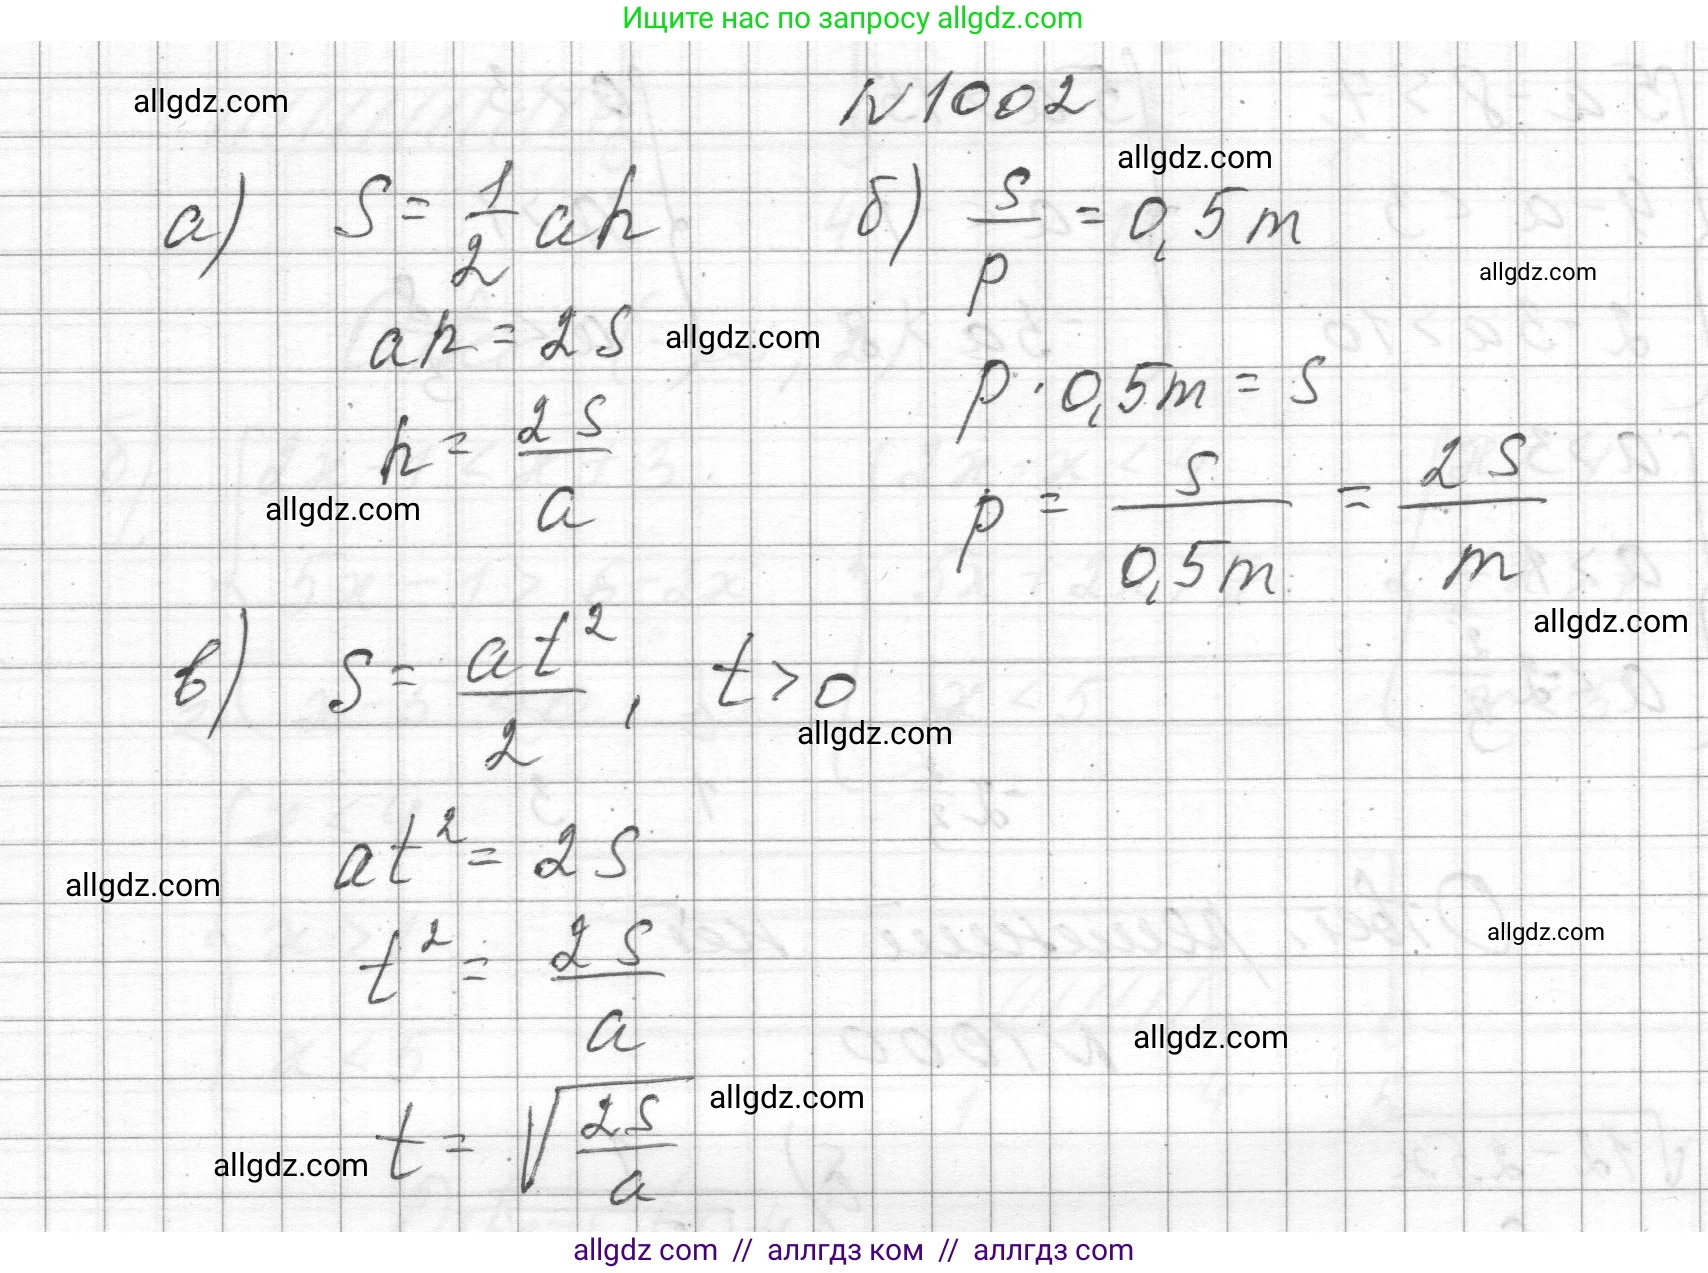 Ищите нас по запросу allgdz.com
allgdz.com
N1002
allgdz.com
а) S = 1/2 ah
ah = 2S
allgdz.com
h = 2S/a
allgdz.com
б) S/p = 0,5m
allgdz.com
p · 0,5m = S
p = S/0,5m = 2S/m
allgdz.com
в) S = at²/2, t > 0
allgdz.com
at² = 2S
allgdz.com
t² = 2S/a
allgdz.com
allgdz.com
allgdz.com
t = √2S/a
allgdz.com
allgdz com // аллгдз ком // аллгдз com